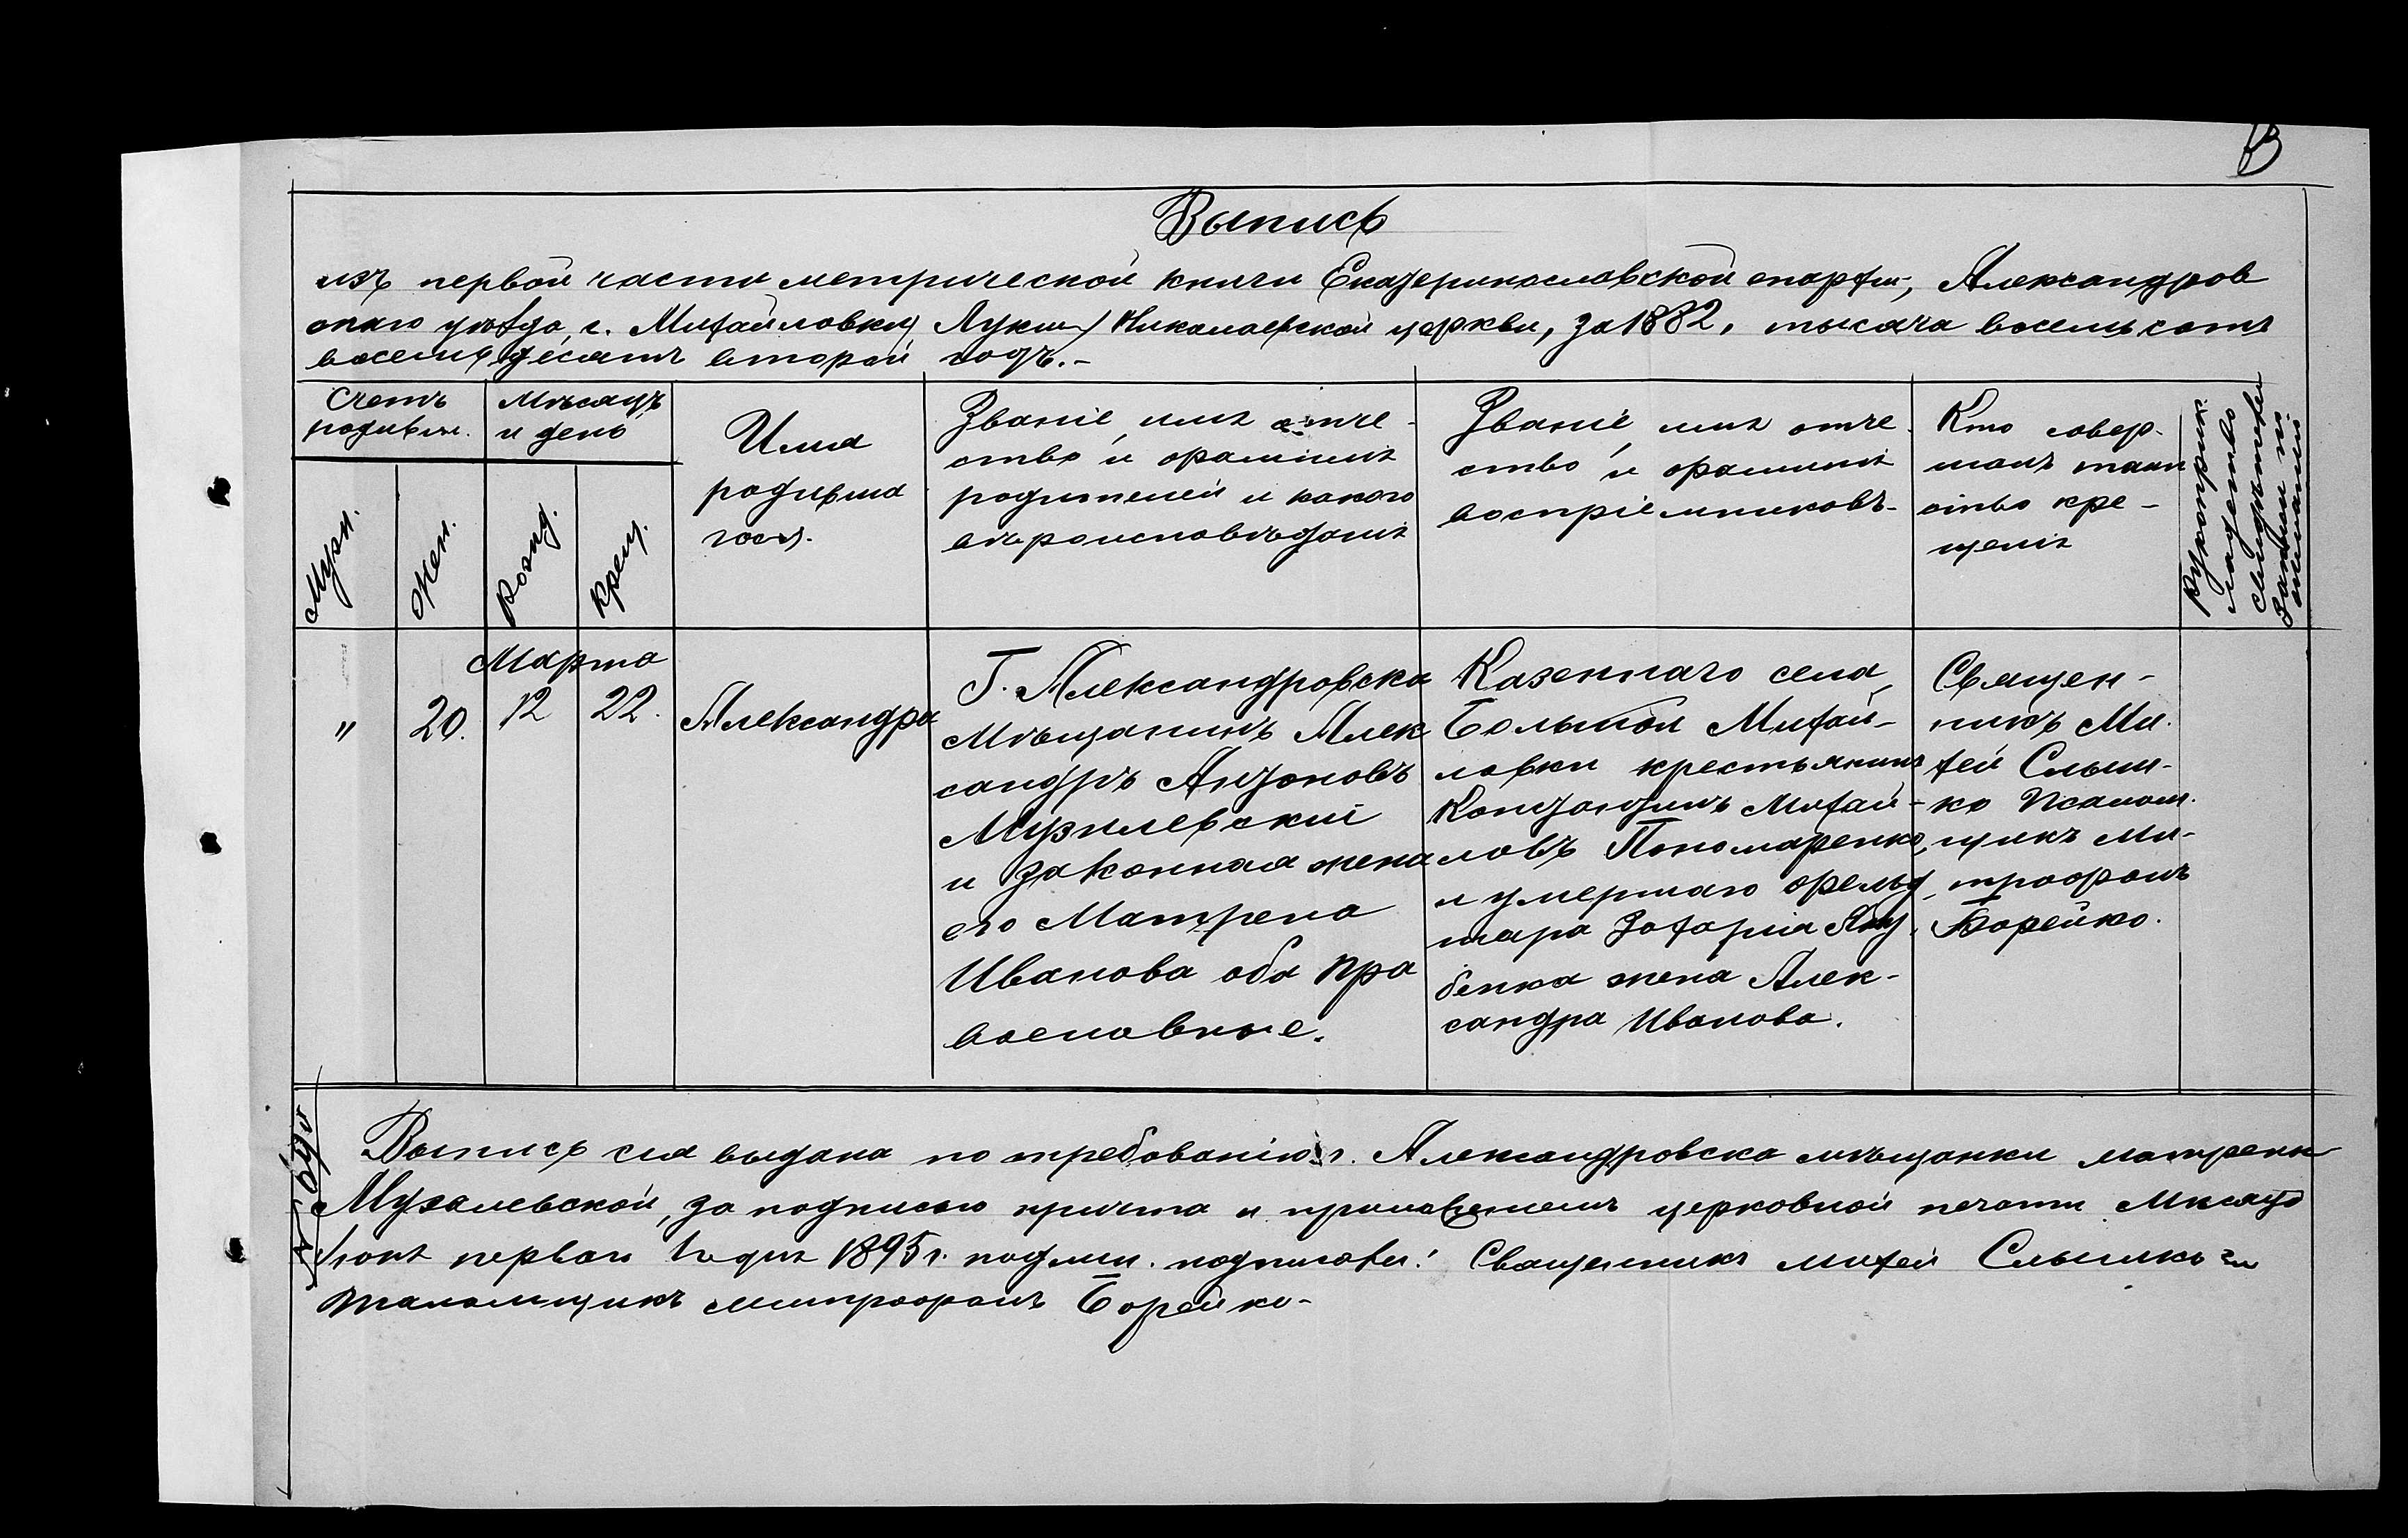 Выпись
изъ первой части метрической книги Екатеринославской епархіи, Александров
скаго уѣзда с. Михайловки Лукаш Николаевской церкви, за 1882, тысяча восемьсотъ
восемьдесятъ второй годъ.-
Счетъ
родивш.
Муж.
Жен.
Мѣсяцъ
и день
Рожд.
Крещ.
Имя
родивша
гося.
Званіе, имя отче-
ство и фамилія
родителей и какого
вѣроисповѣданія
Званіе, имя отче-
ство и фамилія
воспріемниковъ-
Кто совер-
шалъ таин
ство кре-
щенія
Рукоприк-
ладство
свидѣтелей
записи по
желанію
Марта
" 20. 12 22. Александра
Г. Александровска
мѣщанинъ Алек
сандръ Антоновъ
Музалевскій
и законная жена
его Матрена
Иванова оба пра
вославные.
Казеннаго села
Большой Михай-
ловки крестьянинъ
Константинъ Михай-
ловъ Пономаренко,
и умершаго фельд-
шара Захарія
бенка жена Алек-
сандра Иванова.
Священ-
никъ Ми-
хей Слыш-
ко Псалом-
щикъ Ми-
трофанъ
Борейко.
Выпись сія выдана по требованію г. Александровска мѣщанки Матрены
Музалевской, за подписью причта и приложеніемъ церковной печати Мѣсяца
Іюня перваго дня 1895 г. подлин. подписали: Священникъ Михей Слышко и
Псаломщикъ Митрофанъ Борейко-